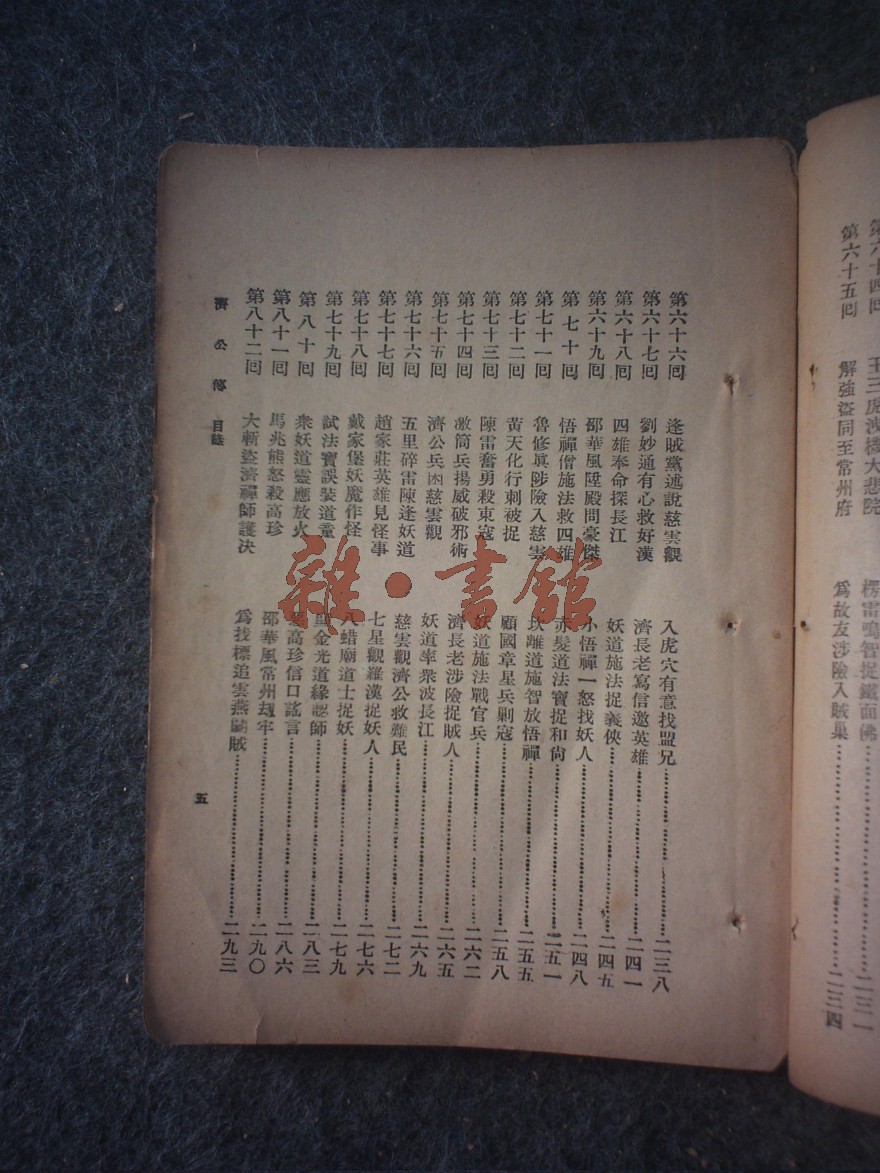 第六十四回　王三虎洩機大悲院　楞雷鳴智捉鐵面佛……二三一
第六十五回　解強盜同至常州府　爲故友涉險入賊巢……二三四
第六十六回　逢賊黨述說慈雲觀　入虎穴有意找盟兄……二三八
第六十七回　劉妙通有心救好漢　濟長老寫信邀英雄……二四一
第六十八回　四雄奉命探長江　妖道施法捉義俠……二四五
第六十九回　邵華風陞殿問豪傑　小悟禪一怒找妖人……二四八
第七十回　悟禪僧施法救四雄　赤髮道法寶捉和尙……二五一
第七十一回　魯修眞陟險入慈雲　坎離道施智放悟禪……二五五
第七十二回　黃天化行刺被捉　顧國章星兵剿寇……二五八
第七十三回　陳雷奮勇殺東寇　妖道施法戰官兵……二六二
第七十四回　激筒兵揚威破邪術　濟長老涉險捉賊人……二六五
第七十五回　濟公兵困慈雲觀　妖道率衆波長江……二六九
第七十六回　五里碑雷陳逢妖道　慈雲觀濟公救難民……二七二
第七十七回　趙家莊英雄見怪事　七星觀羅漢捉妖人……二七六
第七十八回　戴家堡妖魔作怪　八蜡廟道士捉妖……二七九
第七十九回　試法寶誤裝道童　金光道緣認師……二八三
第八十回　衆妖道靈應放火　高珍信口謠言……二八六
第八十一回　馬兆熊怒殺高珍　邵華風常州刼牢……二九〇
第八十二回　大斬盜濟禪師護决　爲找標追雲燕鬭賊……二九三
濟公傳　目錄
五
雜·書館